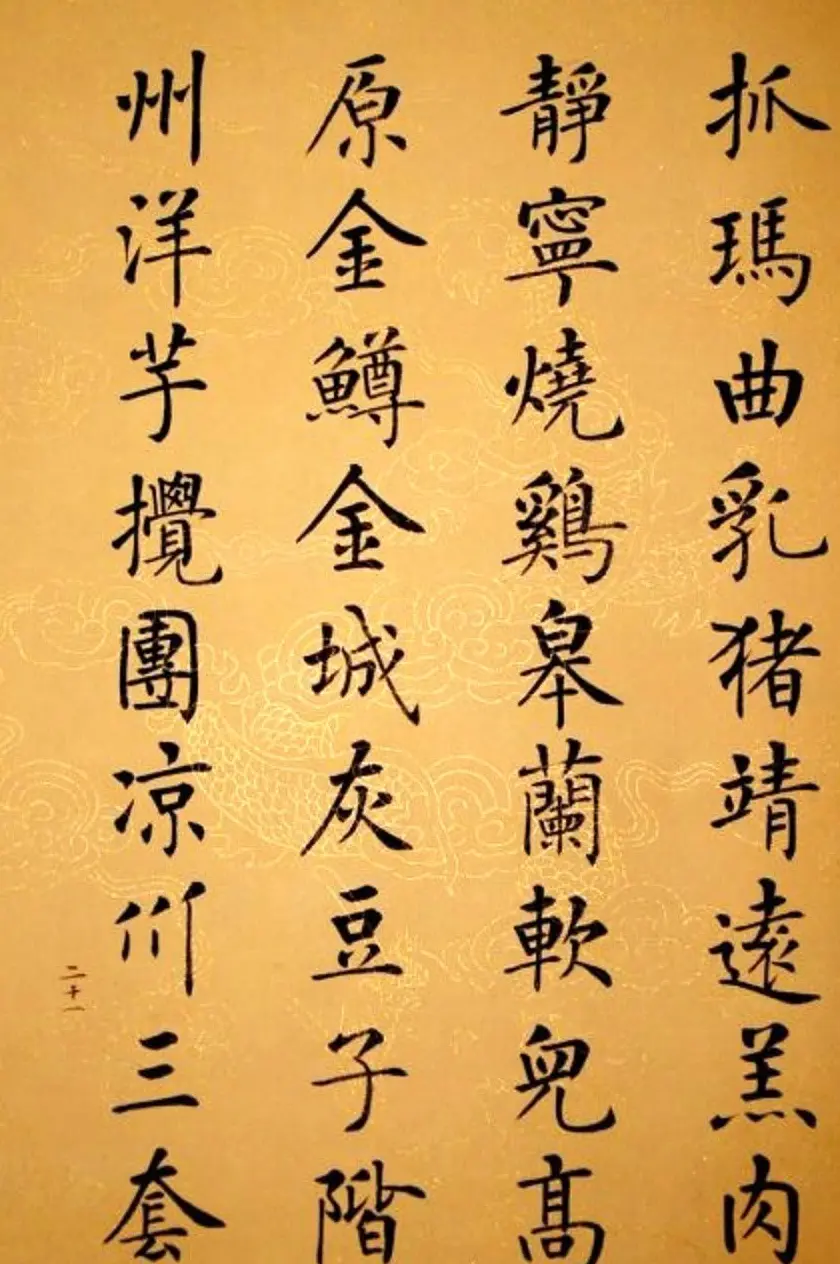 抓瑪曲乳猪靖遠羔肉
靜寧燒鷄皋蘭軟兒髙
原金鱒金城灰豆子階
州洋芋攪團凉州三套
二十一